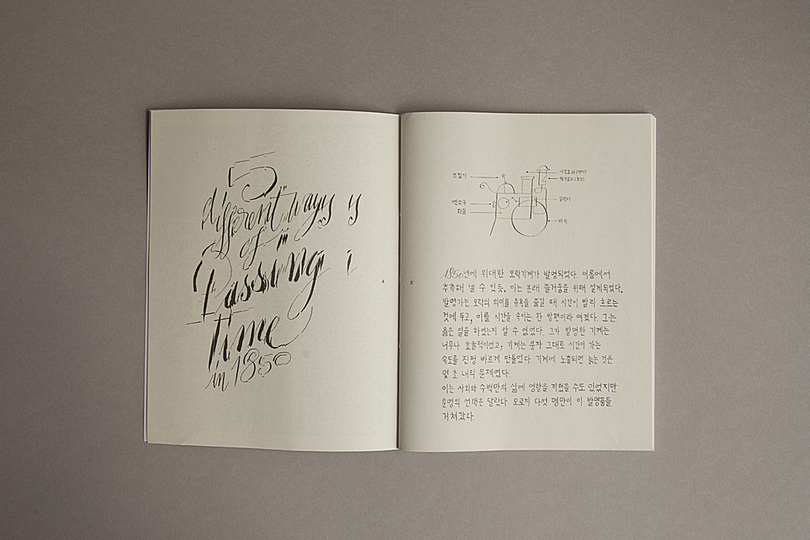 5
different ways
of
Passing
time
in 1850
4
5
1850년에 위대한 오락기계가 발명되었다. 이름에서
추측해 낼 수 있듯, 이는 본래 즐거움을 위해 설계되었다.
발명가는 오락의 의미를 유흥을 즐길 때 시간이 빨리 흐르는
것에 두고, 이를 시간을 죽이는 한 방편이라 여겼다. 그는
옳은 일을 하였는지 알 수 없었다. 그가 발명한 기계는
너무나 효율적이었고, 기계는 문자 그대로 시간이 가는
속도를 진정 빠르게 만들었다. 기계에 노출되면 늙는 것은
몇 초 내의 문제였다.
이는 사회와 수백만의 삶에 영향을 끼쳤을 수도 있었지만
운명의 선택은 달랐다. 오로지 다섯 명만이 이 발명품을
거쳐갔다.